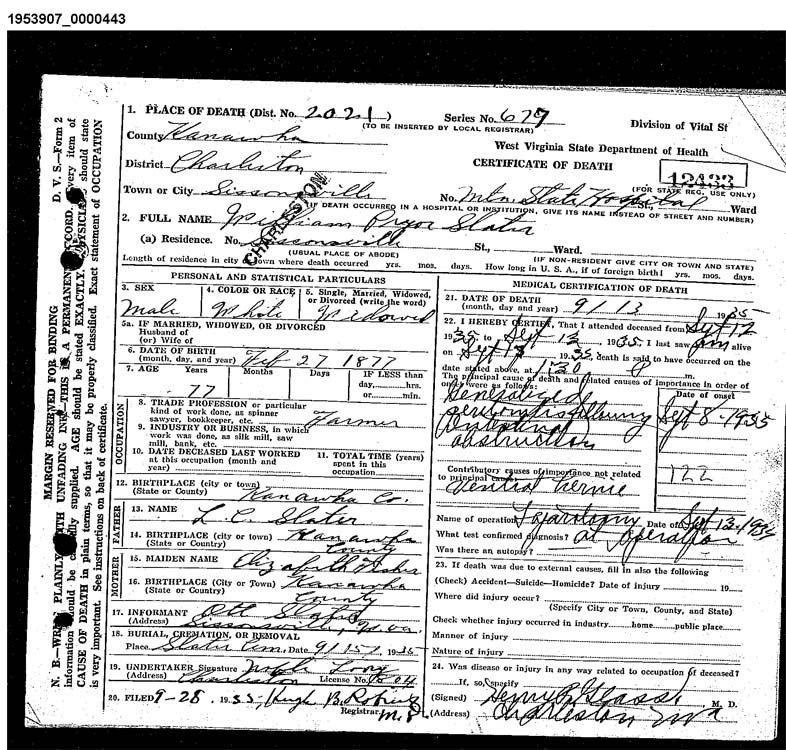 1953907_0000443
D. V. S.—Form 2
MARGIN RESERVED FOR BINDING
N. B.—WRITE PLAINLY WITH UNFADING INK—THIS IS A PERMANENT RECORD. Every item of
information should be carefully supplied. AGE should be stated EXACTLY. PHYSICIANS should state
CAUSE OF DEATH in plain terms, so that it may be properly classified. Exact statement of OCCUPATION
is very important. See instructions on back of certificate.
1. PLACE OF DEATH (Dist. No. 2021) Series No. 679 Division of Vital St
(TO BE INSERTED BY LOCAL REGISTRAR)
County Kanawha West Virginia State Department of Health
CERTIFICATE OF DEATH
District Charleston 12433
(FOR STATE REG. USE ONLY)
Town or City Sissonsville No. Mtn. State Hospital St., Ward
(IF DEATH OCCURRED IN A HOSPITAL OR INSTITUTION, GIVE ITS NAME INSTEAD OF STREET AND NUMBER)
CHARLESTON
2. FULL NAME William Pryor Slater
(a) Residence. No. Sissonsville St., Ward.
(USUAL PLACE OF ABODE) (IF NON-RESIDENT GIVE CITY OR TOWN AND STATE)
Length of residence in city or town where death occurred yrs. mos. days. How long in U. S. A., if of foreign birth? yrs. mos. days.
PERSONAL AND STATISTICAL PARTICULARS
3. SEX Male
4. COLOR OR RACE White
5. Single, Married, Widowed, or Divorced (write the word) Widowed
5a. IF MARRIED, WIDOWED, OR DIVORCED
Husband of
(or) Wife of
6. DATE OF BIRTH
(month, day, and year) Feb 27 1877
7. AGE Years Months Days IF LESS than
77 day,......hrs.
or......min.
OCCUPATION
8. TRADE PROFESSION or particular
kind of work done, as spinner
sawyer, bookkeeper, etc. Farmer
9. INDUSTRY OR BUSINESS, in which
work was done, as silk mill, saw
mill, bank, etc.
10. DATE DECEASED LAST WORKED
at this occupation (month and
year)
11. TOTAL TIME (years)
spent in this
occupation
12. BIRTHPLACE (city or town)
(State or County) Kanawha Co.
FATHER
13. NAME L. C. Slater
14. BIRTHPLACE (city or town)
(State or County) Kanawha
County
MOTHER
15. MAIDEN NAME Elizabeth
16. BIRTHPLACE (City or Town)
(State or County) Kanawha
County
17. INFORMANT Slater
(Address) Sissonsville, W. Va.
18. BURIAL, CREMATION, OR REMOVAL
Place Slater Cem. Date 9/15/ 1935
19. UNDERTAKER Signature Long
(Address) Charleston License No.
20. FILED 9-28. 1935, Hugh B. Robins
Registrar. M. D.
MEDICAL CERTIFICATION OF DEATH
21. DATE OF DEATH
(month, day and year) 9/13 1935
22. I HEREBY CERTIFY, That I attended deceased from Sept 12
1935 to Sept 13 1935. I last saw him alive
on Sept 13 1935, death is said to have occurred on the
date stated above, at 1:30 P m.
The principal cause of death and related causes of importance in order of
onset were as follows: Date of onset
Generalized
peritonitis following Sept 8-1935
intestinal
obstruction
Contributory causes of importance not related
to principal cause: 122
Ventral hernie
Name of operation Laparotomy Date of Sept 12, 1935
What test confirmed diagnosis? at operation
Was there an autopsy?
23. If death was due to external causes, fill in also the following
(Check) Accident—Suicide—Homicide? Date of injury 19
Where did injury occur?
(Specify City or Town, County, and State)
Check whether injury occurred in industry......home......public place
Manner of injury
Nature of injury
24. Was disease or injury in any way related to occupation of deceased?
If, so, specify
(Signed) Henry Glass, M. D.
(Address) Charleston W Va